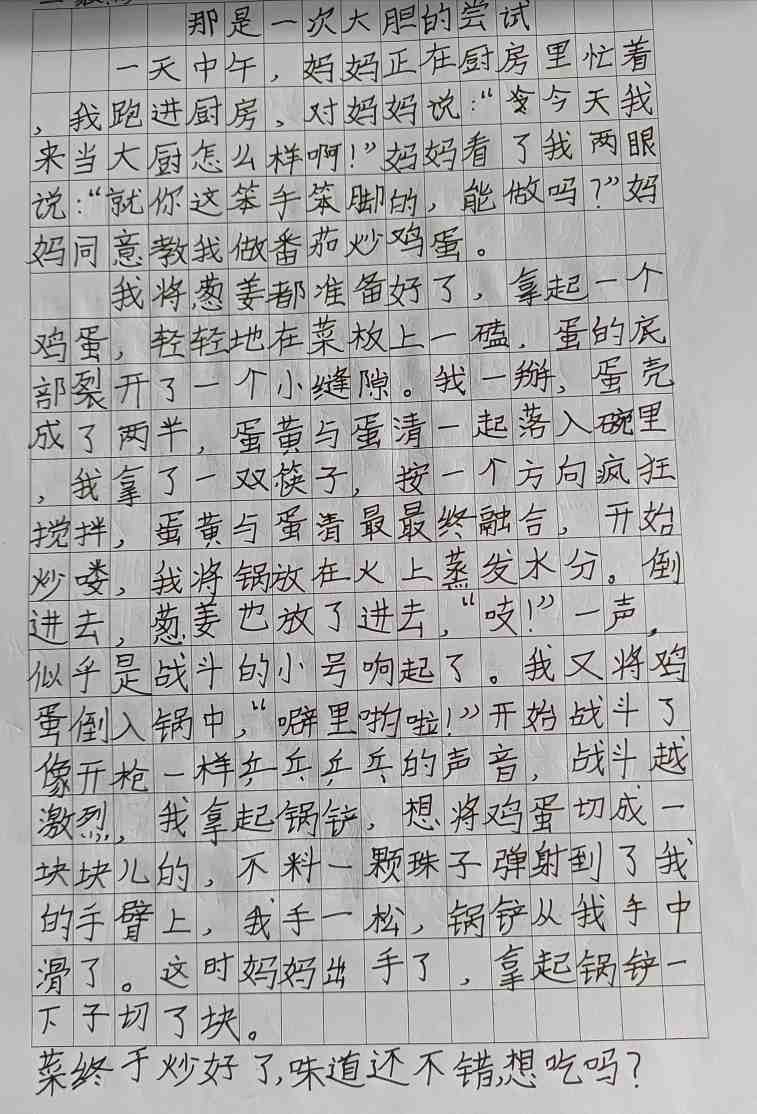 那是一次大胆的尝试
一天中午，妈妈正在厨房里忙着
，我跑进厨房，对妈妈说：“今天我
来当大厨怎么样啊！”妈妈看了我两眼
说：“就你这笨手笨脚的，能做吗？”妈
妈同意教我做番茄炒鸡蛋。
我将葱姜都准备好了，拿起一个
鸡蛋，轻轻地在菜板上一磕，蛋的底
部裂开了一个小缝隙。我一掰，蛋壳
成了两半，蛋黄与蛋清一起落入碗里
，我拿了一双筷子，按一个方向疯狂
搅拌，蛋黄与蛋清最最终融合，开始
炒喽，我将锅放在火上蒸发水分。倒
进去，葱姜也放了进去，“吱！”一声，
似乎是战斗的小号响起了。我又将鸡
蛋倒入锅中，“噼里啪啦！”开始战斗了
像开枪一样乒乓乒乓的声音，战斗越
激烈，我拿起锅铲，想将鸡蛋切成一
块块儿的，不料一颗珠子弹射到了我
的手臂上，我手一松，锅铲从我手中
滑了。这时妈妈出手了，拿起锅铲一
下子切了块。
菜终于炒好了，味道还不错，想吃吗？